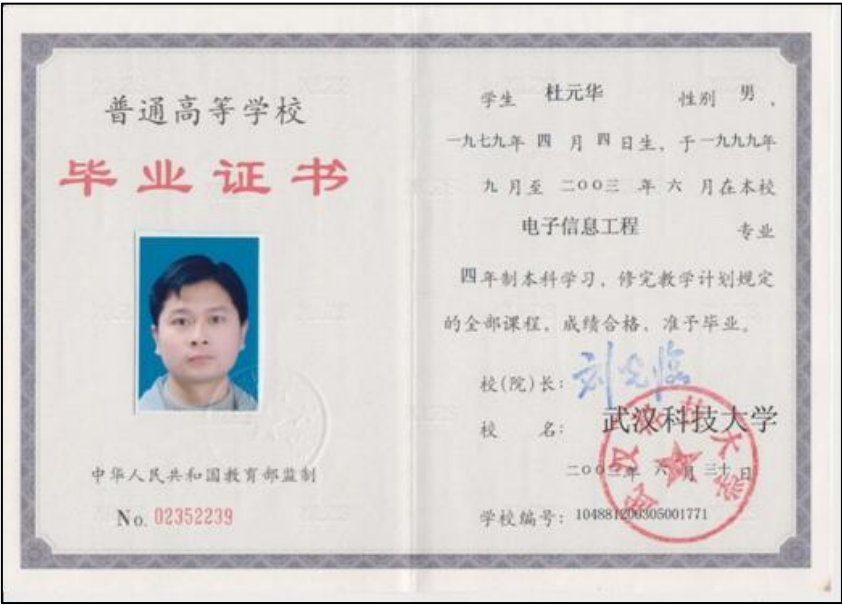 普通高等学校
毕业证书
中华人民共和国教育部监制
No. 02352239
学生 杜元华 性别 男，
一九七九年 四 月 四 日生，于一九九九年
九 月至 二○○三 年 六 月在本校
电子信息工程 专业
四年制本科学习，修完教学计划规定
的全部课程，成绩合格，准予毕业。
校(院)长：刘光临
校 名：武汉科技大学
二○○三年 六 月 三十 日
学校编号：104881200305001771
武汉科技大学